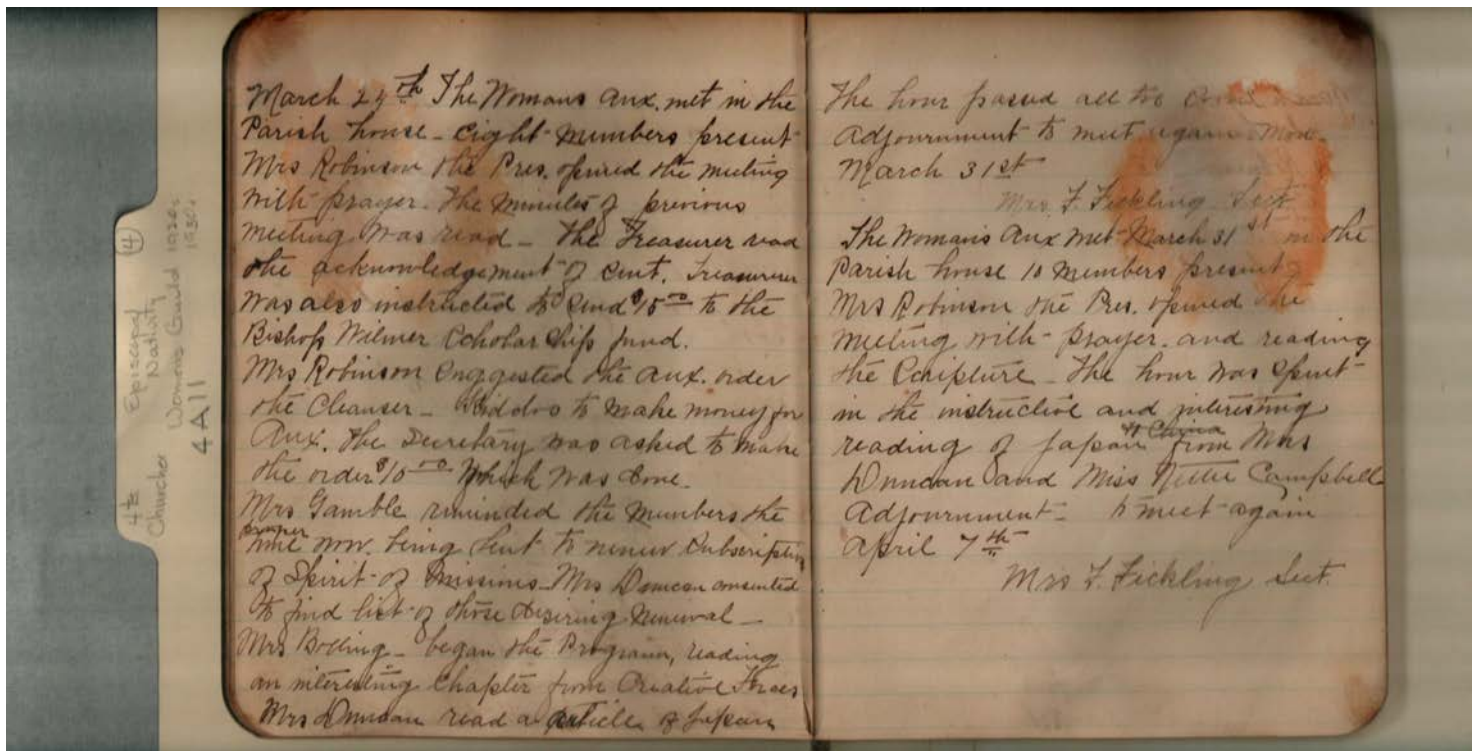 March 24th The Womans Aux. met in the
Parish house - Eight members present
Mrs Robinson the Pres. opened the meeting
with prayer. The minutes of previous
meeting was read - The Treasurer read
the acknowledgement of sent. Treasurer
was also instructed to send $15.00 to the
Bishop Wilmer Scholar Ship fund.
Mrs Robinson suggested the Aux. order
the Cleanser - to make money for
Aux. The Secretary was asked to make
the order $10.00 Which was done.
Mrs Gamble reminded the members the
proper
time now. being sent to renew subscription
of Spirit of Missions - Mrs Duncan consented
to find list of those desiring renewal -
Mrs Bolling - began the Program, reading
an interesting Chapter from Creative Forces
Mrs Duncan read a article of Japan
The hour passed all too
Adjournment to meet again Mon.
March 31st
Mrs. F. Fickling Sect.
The Womans Aux met March 31st in the
Parish house 10 members present
Mrs Robinson the Pres. opened the
meeting with prayer. and reading
the Scripture - The hour was spent
in the instructive and interesting
& China
reading of Japan from Mrs
Duncan and Miss Nettie Campbell
Adjournment - to meet again
April 7th
Mrs F. Fickling Sect.
4 Episcopal
Nativity
Churches Womens Guild 1920s
1930s
4A11